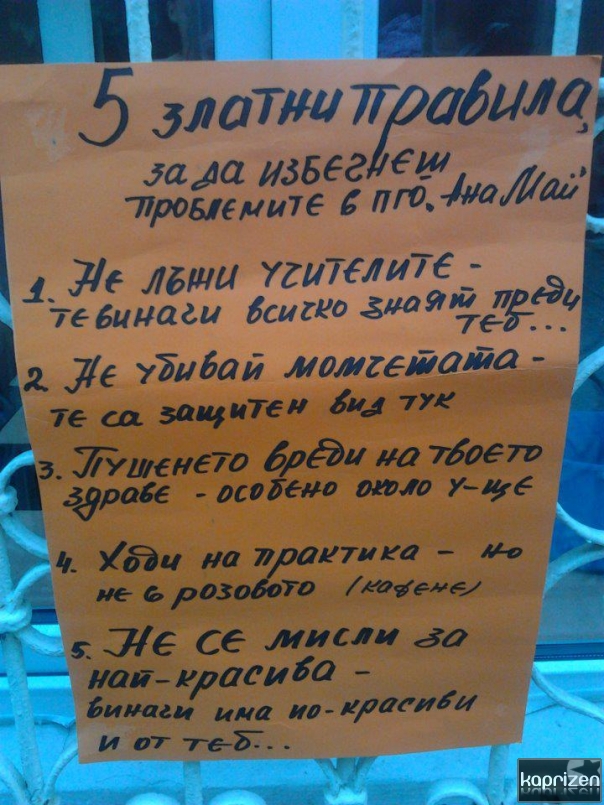 5 златни правила,
за да избегнеш
проблемите в ПГО. "Ана Май"
1. Не лъжи учителите -
те винаги всичко знаят преди
теб...
2. Не убивай момчетата -
те са защитен вид тук
3. Пушенето вреди на твоето
здраве - особено около у-ще
4. Ходи на практика - но
не в розовото (кафене)
5. Не се мисли за
най-красива -
винаги има по-красиви
и от теб...
kaprizen